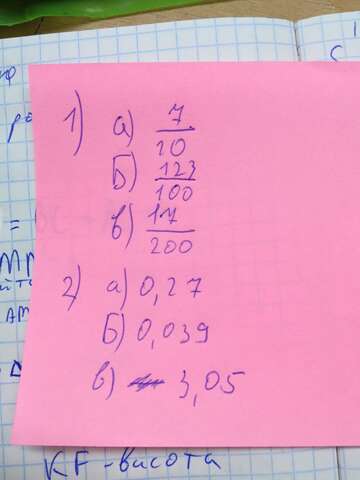 1) а) 7/10
Б) 123/100
в) 17/200
2) а) 0,27
Б) 0,039
в) 3,05
KF - висота